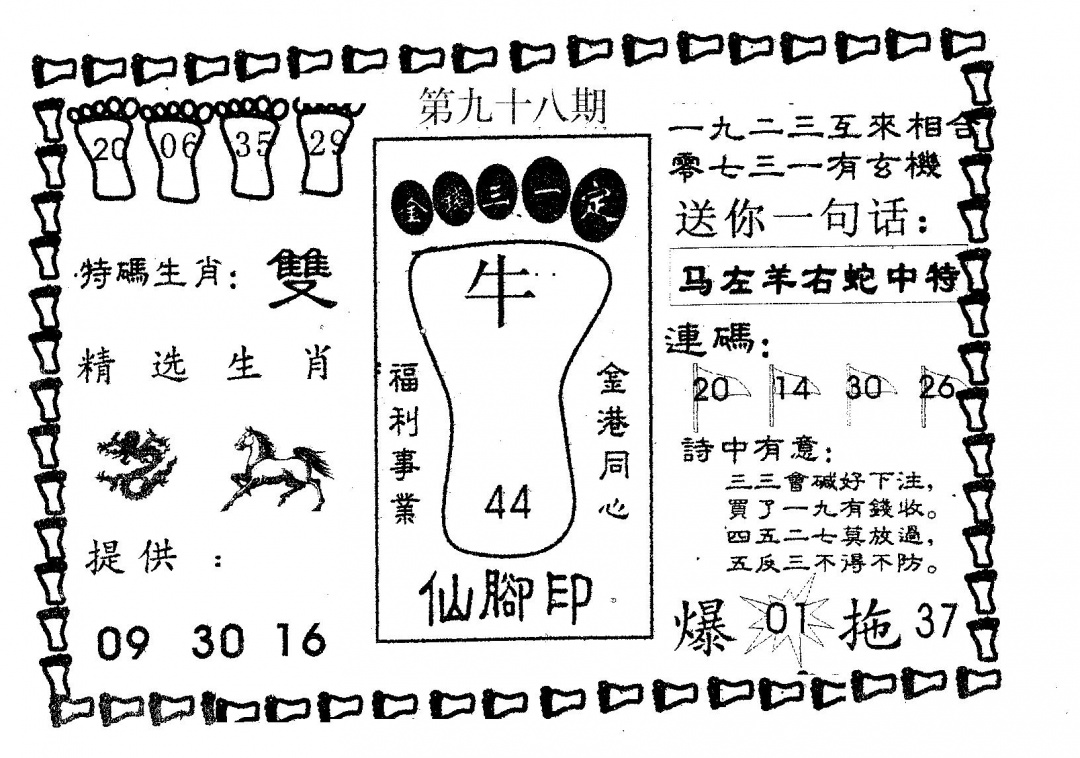 第九十八期
20 06 35 29
特碼生肖：雙
精选生肖
提供：
09 30 16
金 三一定
牛
福利事業
金港同心
44
仙腳印
一九二三互來相合
零七三一有玄機
送你一句话：
马左羊右蛇中特
連碼：
20 14 30 26
詩中有意：
三三會碱好下注，
買了一九有錢收。
四五二七莫放過，
五反三不得不防。
爆 01 拖 37